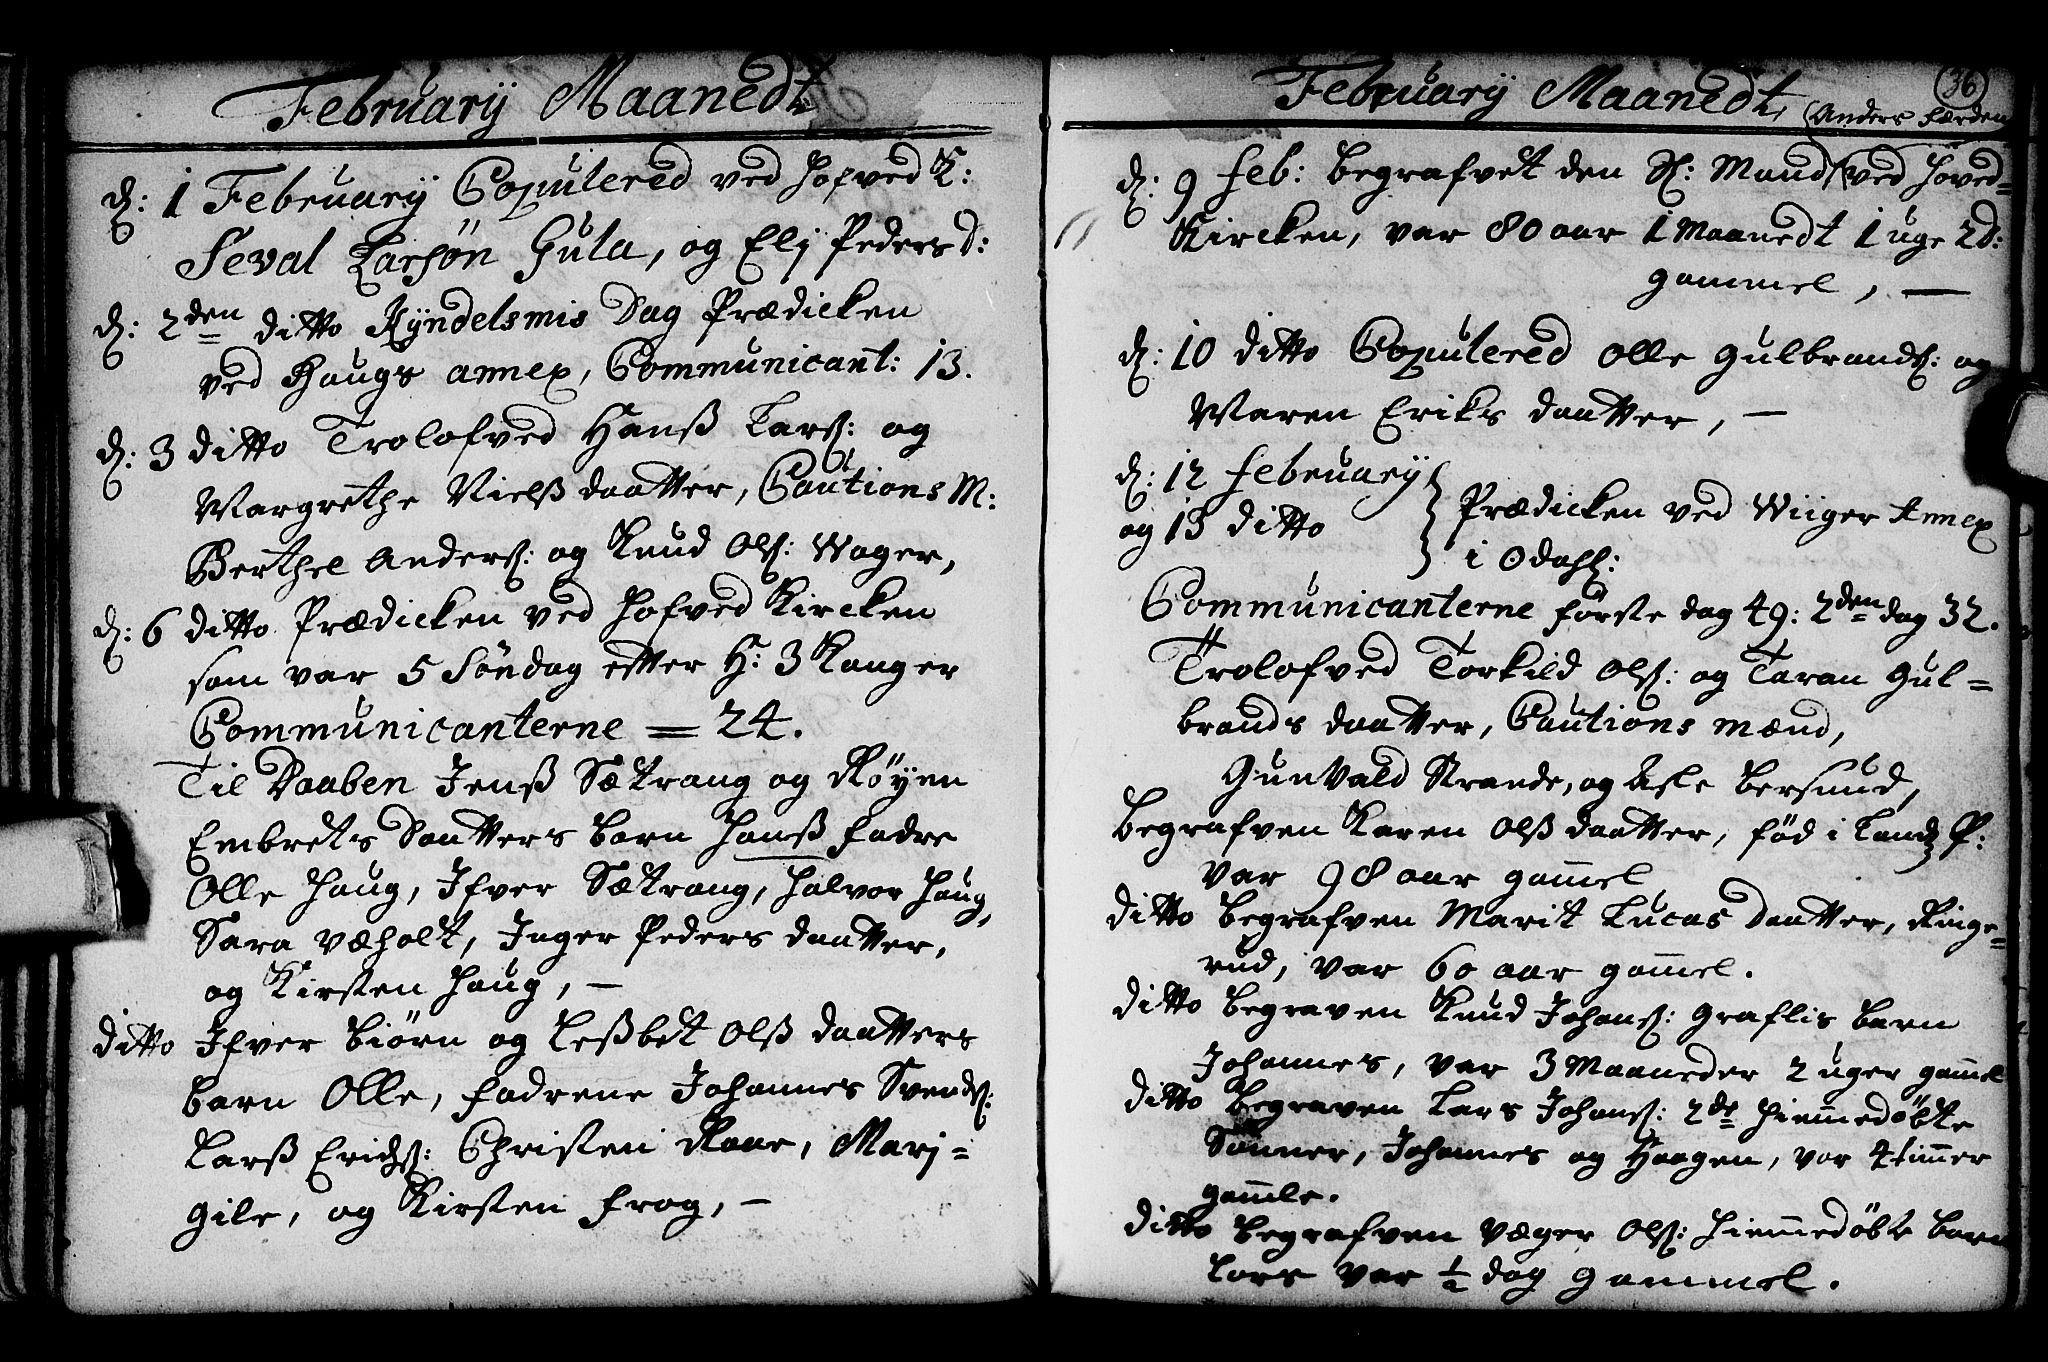 Februarij Maanedt
d: 1 Februarij Copulered ved Hofved K:
Seval Larsøn Gula, og Elj Peders D:
d: 2den ditto Kyndelsmis Dag Prædicken
ved Haugs annex, Communicant: 13.
d: 3 ditto Trolofved Hanß Lars: og
Margrethe Nielß daatter, Cautions M:
Berthel Anders: og Knud Ols: Wager,
d: 6 ditto Prædicken ved Hofved Kircken
som var 5 Søndag efter H: 3 Konger
Communicanterne = 24.
Til Daaben Jenß Sætrang og Røyen
Embrets Daatters barn Hanß fadre
Olle Haug, Ifver Sætrang, Halvor Haug,
Sara Væholt, Inger Peders daatter,
og Kirsten Haug, —
ditto Ifver Biørn og Leßbet Olß daatters
barn Olle, fadrene Johannes Svends:
Larß Erichs: Christen Roae, Marj=
Gile, og Kirsten Frog, —
Februarij Maanedt,
36
(Anders Færden
d: 9 Feb: begrafvet den Sl: Mand (ved Hoved=
Kircken, var 80 aar 1 Maanedt 1 uge 2 d:
gammel, —
d: 10 ditto Copulered Olle Gulbrands: og
Maren Eriks daatter, —
d: 12 Februarij
og 13 ditto
Prædicken ved Wiiger Annex
i Odahl:
Communicanterne første dag 49: 2den dag 32.
Trolofved Torkild Ols: og Taran Gul=
brands daatter, Cautions mænd,
Gunvald Strande, og Asle Bersund,
Begrafven Karen Olß daatter, fød i Landz P:
var 98 aar gam̅el
ditto begrafven Marit Lucas daatter, Ringe=
rud, var 60 aar gam̅el.
ditto begraven Knud Johans: Graflis barn
Johannes, var 3 Maaneder 2 uger gam̅el
ditto begraven Lars Johans: 2de hiem̅edøbte
Sønner, Johannes og Haagen, var 4 tim̅er
gam̅le.
ditto begrafven Væger Ols: hiem̅edøbt barn
Lars var ½ dag gammel.